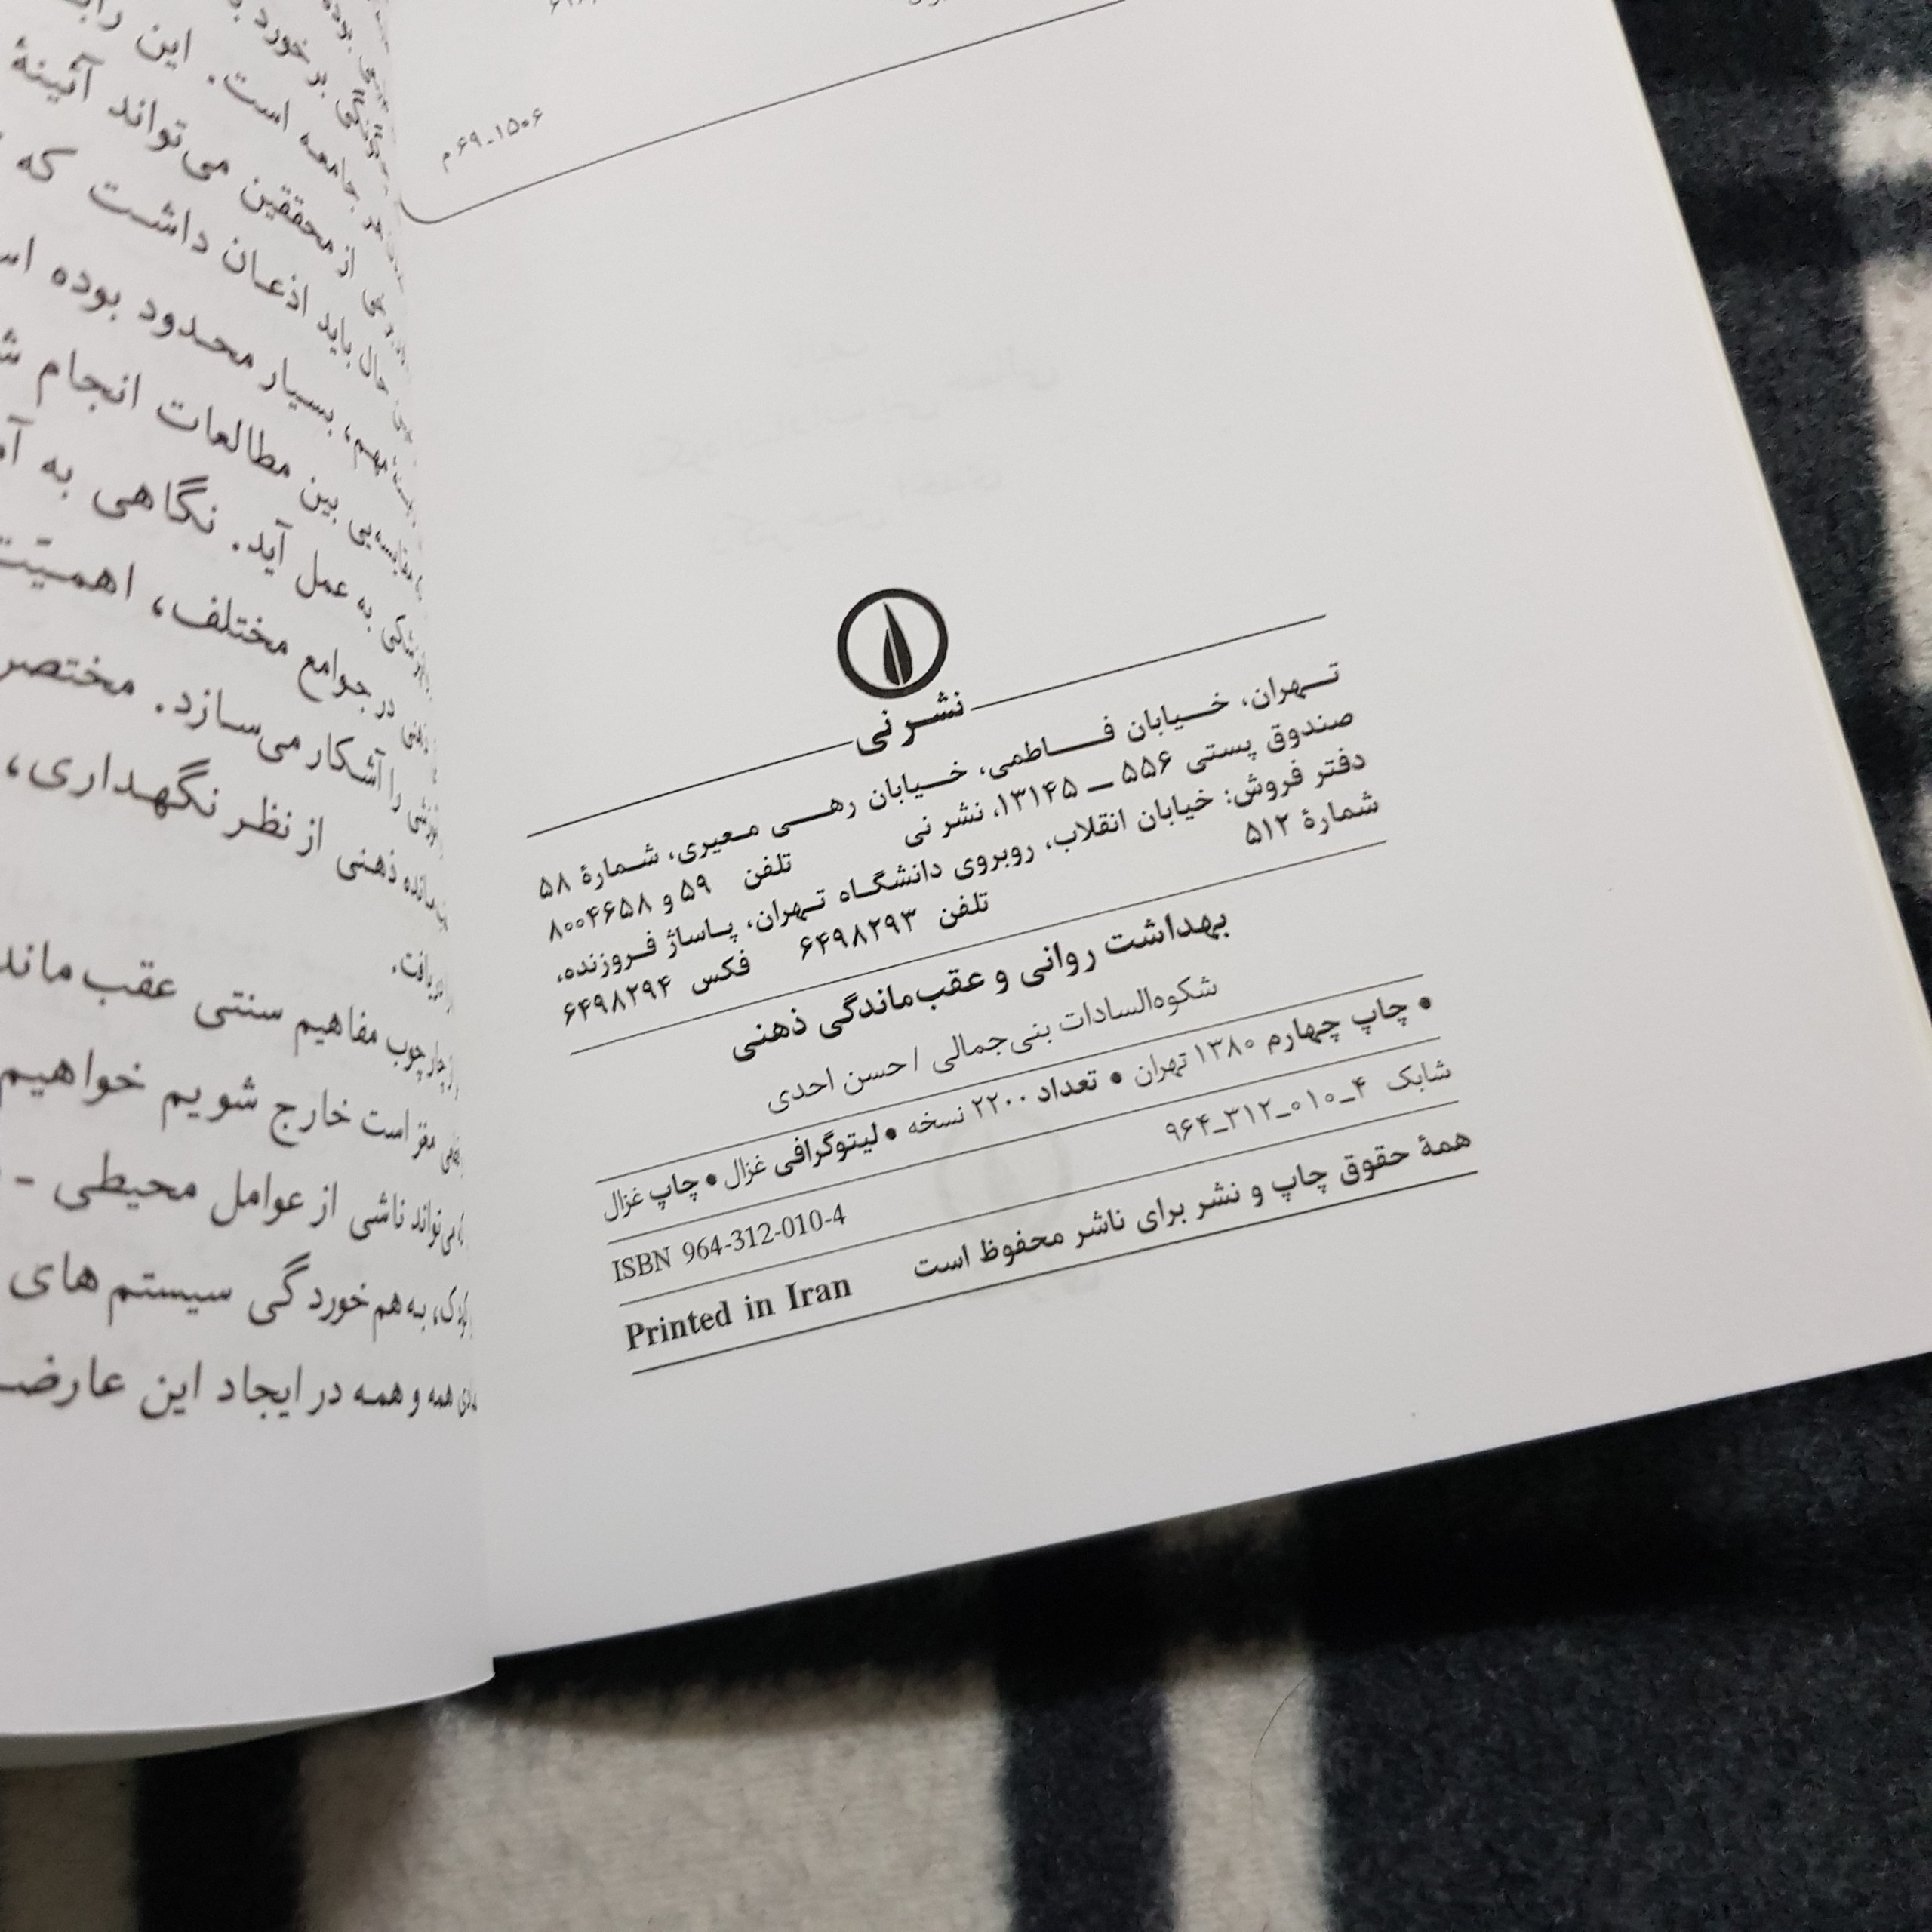 ۱۵۰۶-۶۹م
نشر نی
تهران، خیابان فاطمی، خیابان رهی معیری، شمارهٔ ۵۸
صندوق پستی ۵۵۶ — ۱۳۱۴۵، نشر نی تلفن ۵۹ و ۸۰۰۴۶۵۸
دفتر فروش: خیابان انقلاب، روبروی دانشگاه تهران، پاساژ فروزنده،
شمارهٔ ۵۱۲ تلفن ۶۴۹۸۲۹۳ فکس ۶۴۹۸۲۹۴
بهداشت روانی و عقب‌ماندگی ذهنی
شکوه‌السادات بنی‌جمالی / حسن احدی
• چاپ چهارم ۱۳۸۰ تهران • تعداد ۲۲۰۰ نسخه • لیتوگرافی غزال • چاپ غزال
شابک ۴-۰۱۰-۳۱۲-۹۶۴ ISBN 964-312-010-4
همهٔ حقوق چاپ و نشر برای ناشر محفوظ است Printed in Iran
بر خورد
جامعه است. این
از محققین می‌تواند آئینهٔ
حال باید اذعان داشت که
مهم، بسیار محدود بوده
بین مطالعات انجام
به عمل آید. نگاهی به
در جوامع مختلف، اهمیّت
را آشکار می‌سازد. مختصر
ذهنی از نظر نگهداری،
چوب مفاهیم سنتی عقب
مغز است خارج شویم خواهیم
می‌تواند ناشی از عوامل محیطی -
کودک، به‌هم‌خوردگی سیستم‌های
همه و همه در ایجاد این